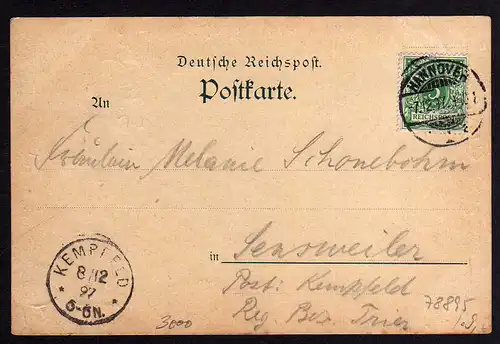 Deutsche Reichspost.
Postkarte.
HANNOVER
An
REICHSPOST
Fräulein Melanie Schonebohm
in Sensweiler
KEMPFELD
8/12
97
6-6N.
Post: Kempfeld
Reg. Bez. Trier
3000
78895